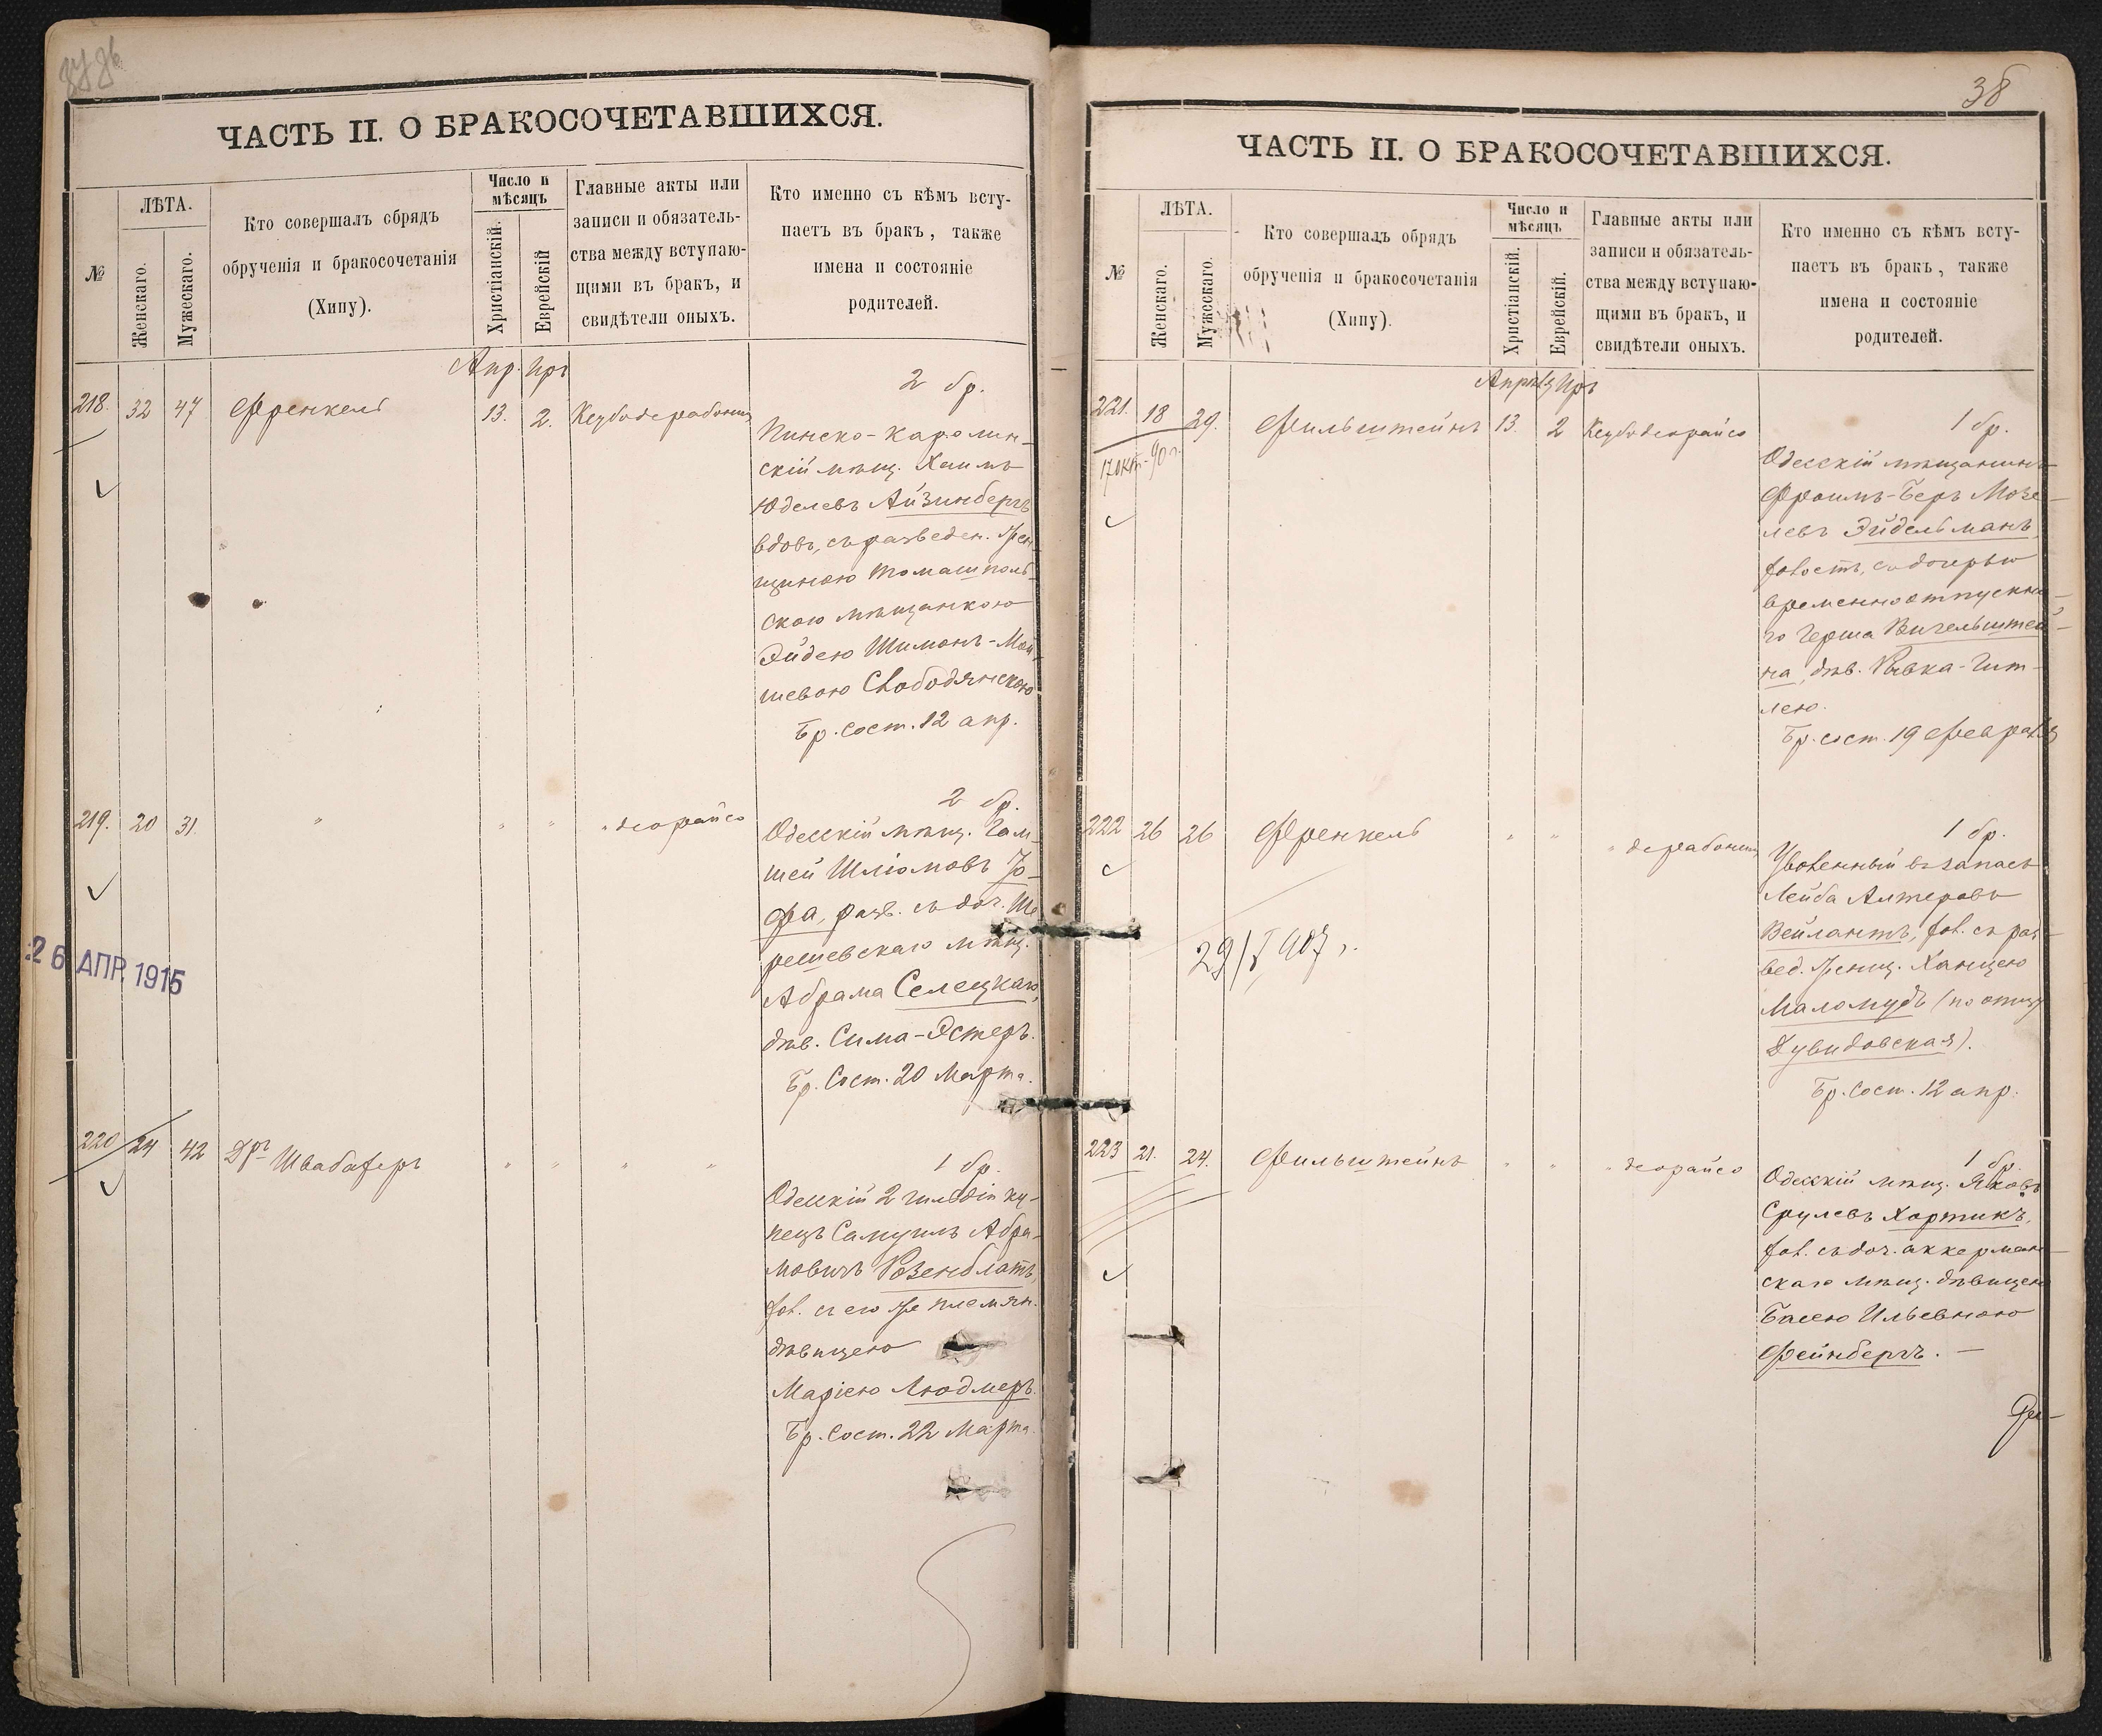 ЧАСТЬ II. О БРАКОСОЧЕТАВШИХСЯ.
№
ЛѢТА.
Женскаго.
Мужескаго.
Кто совершалъ обрядъ
обрученія и бракосочетанія
(Хипу).
Число и
мѣсяцъ
Христіанскій.
Еврейскій
Главные акты или
записи и обязатель-
ства между вступаю-
щими въ бракъ, и
свидѣтели оныхъ.
Кто именно съ кѣмъ всту-
паетъ въ бракъ, также
имена и состояніе
родителей.
Апр. Иръ
218. 32 47 Френкель 13. 2.
2 бр.
Пинско-Каролин-
скій мѣщ. Хаимъ
Юделевъ Айзинбергъ
вдовъ, съ разведен. жен-
щиною томашполь-
скою мѣщанкою
Эйдею Шимонъ-Мой-
шевою Свободянскою
Бр. сост. 12 апр.
219. 20 31. " " " " деорайсо
2 бр.
Одесскій мѣщ. Гам-
шей Шліомовъ Іо-
фа, разв. съ доч. Ше
решевскаго мѣщ.
Абрама Селецкаго,
дѣв. Сима-Эстеръ.
Бр. Сост. 20 Марта.
26 АПР. 1915
220 24 42 Дръ Швабахеръ " " " "
1 бр.
Одесскій 2 гильдіи ку-
пецъ Самуилъ Абра-
мовичъ Розенблатъ,
хол. съ его же племян.
дѣвицею
Маріею Людмеръ.
Бр. Сост. 22 Марта.
38
ЧАСТЬ II. О БРАКОСОЧЕТАВШИХСЯ.
№
ЛѢТА.
Женскаго.
Мужескаго.
Кто совершалъ обрядъ
обрученія и бракосочетанія
(Хипу).
Число и
мѣсяцъ
Христіанскій.
Еврейскій.
Главные акты или
записи и обязатель-
ства между вступаю-
щими въ бракъ, и
свидѣтели оныхъ.
Кто именно съ кѣмъ всту-
паетъ въ бракъ, также
имена и состояніе
родителей.
Апрѣль Иръ
221. 18 29. Фильштейнъ 13. 2 Кесубодеорайсо
17 окт. 90 г.
1 бр.
Одесскій мѣщанинъ
Фроимъ-Беръ Мозе-
левъ Эйдельманъ,
холост, съ дочерью
временноотпускна-
го Герша Вигельштей-
на, дѣв. Ривка-Гит-
лею.
Бр. сост. 19 февраля
222 26 26 Френкель " " "
1 бр.
Уволенный въ запасъ
Лейба Алтеровъ
Вейлантъ, хол. съ раз-
вед. женщ. Ханцею
Маломудъ (по отцу
Дувидовская).
Бр. Сост. 12 апр.
223 21. 24. Фильштейнъ " " " деорайсо
1 бр.
Одесскій мѣщ. Яковъ
Срулевъ Хортикъ,
хол. съ доч. аккерман-
скаго мѣщ. дѣвицею
Басею Ильевною
Фейнбергъ. —